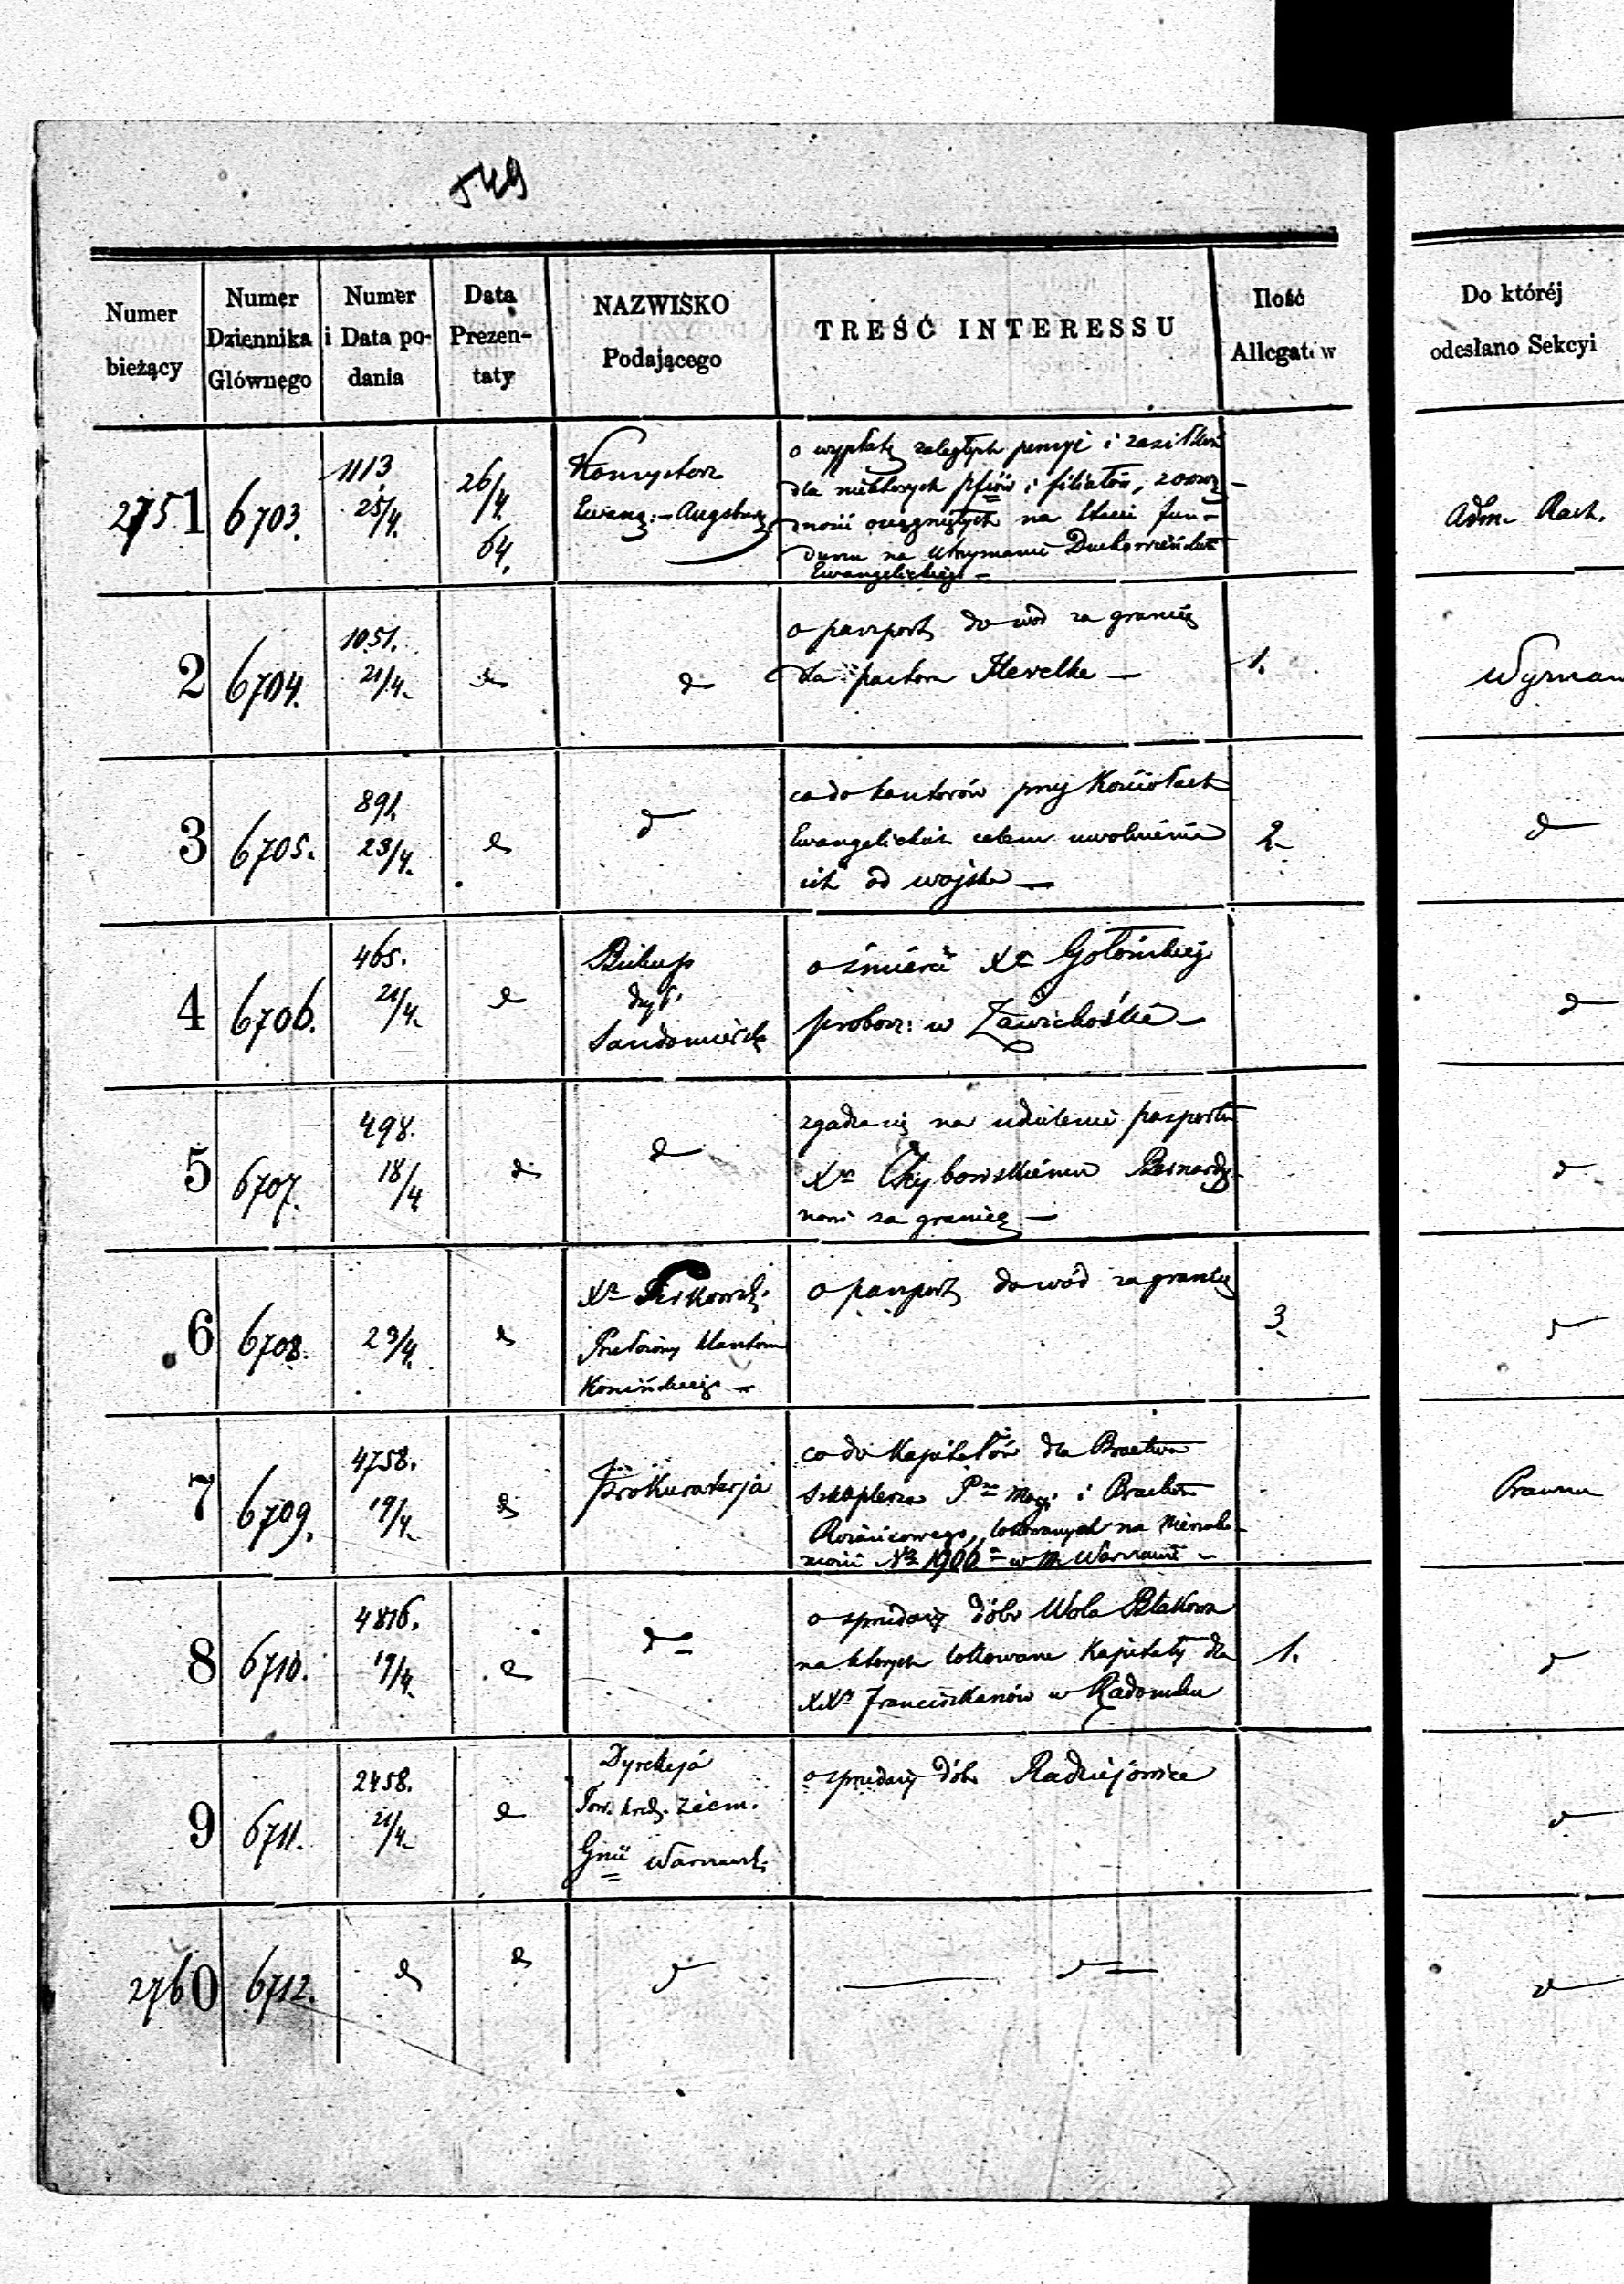 549
Numer bieżący
Numer Dziennika Głównego
Numer i Data podania
Data Prezentaty
NAZWISKO Podającego
TREŚĆ INTERESSU
Ilość Allegatów
Do któréj odesłano Sekcyi
2751
6703.
1113
25/4.
26/4. 64.
Konsystorz
Ewang:-Augsburg
o wypłatę zaległych pensyi i zasiłków
dla niektorych pfiów i filiałów,
ności na
na utrzymanie Duchowieństwa
Ewangelickiego -
Adm. Rach.
2
6704.
1051.
21/4.
d
d
o paszport do wód za granicę
dla pastora Hevelke -
1.
Wyznań
3
6705.
891.
23/4.
d
d
co do kantorów przy Kościołach
Ewangelickich celem uwolnienia
ich od wojska -
2.
d
4
6706.
465.
21/4.
d
Biskup
dyec.
Sandomierski
o śmierci Xa
probosz: w Zawichoście -
d
5
6707.
498.
18/4
d
d
zgadza się na udzielenie paszportu
Xu Bernardy-
nowi za granicę -
d
6
6708.
23/4.
d
Xa
Przełożony klasztoru
Konińskiego -
o paszport do wód za granicę
3.
d
7
6709.
4758.
19/4.
d
Prokuratorja
co do Kapitałów dla Bractwa
Szkaplerza Pny Maryi i Bractwa
Różańcowego, lokowanych na Nierucho-
mości No 1906 w m. Warszawie -
Prawna
8
6710.
4816.
19/4.
d
d
o sprzedaży dóbr Wola
na których lokowane Kapitały dla
XXy Franciszkanów w Radomsku
1.
d
9
6711.
2458.
21/4.
d
Dyrekcja
Tow. kred. Ziem.
Gnii Warszawsk:
o sprzedaży dóbr Radziejowice
d
2760
6712.
d
d
d
d
d